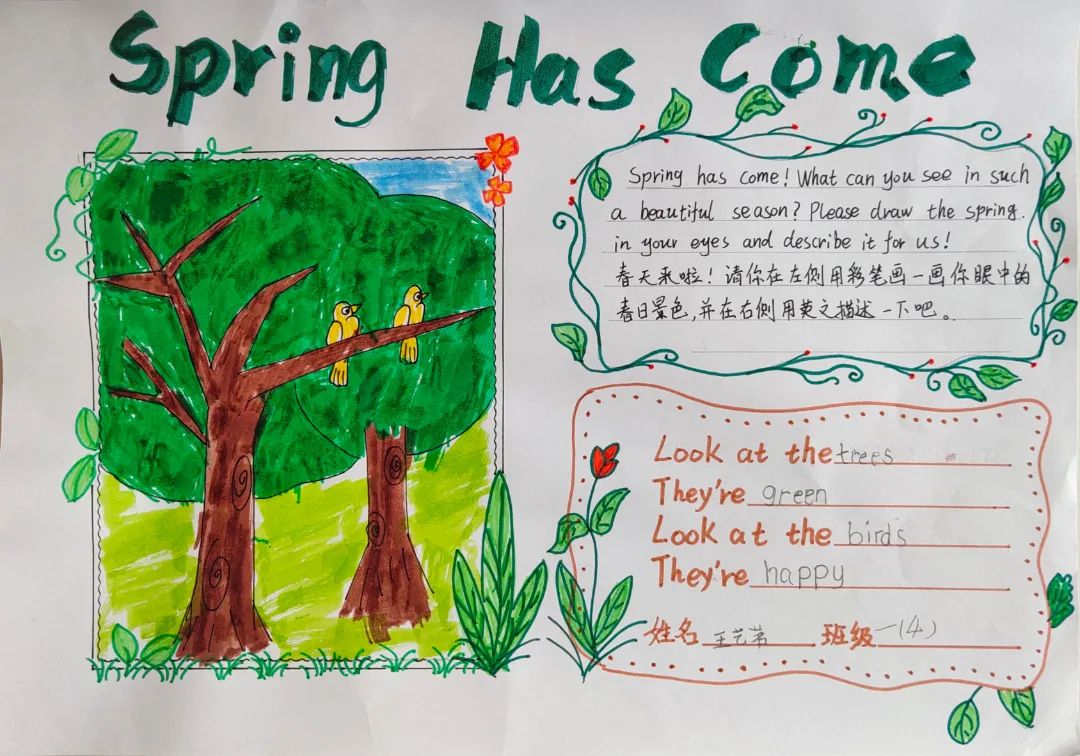 Spring Has Come
Spring has come! What can you see in such
a beautiful season? Please draw the spring.
in your eyes and describe it for us!
春天来啦！请你在左侧用彩笔画一画你眼中的
春日景色,并在右侧用英文描述一下吧。
Look at the trees
They're green
Look at the birds
They're happy
姓名 王艺 班级 一(4)